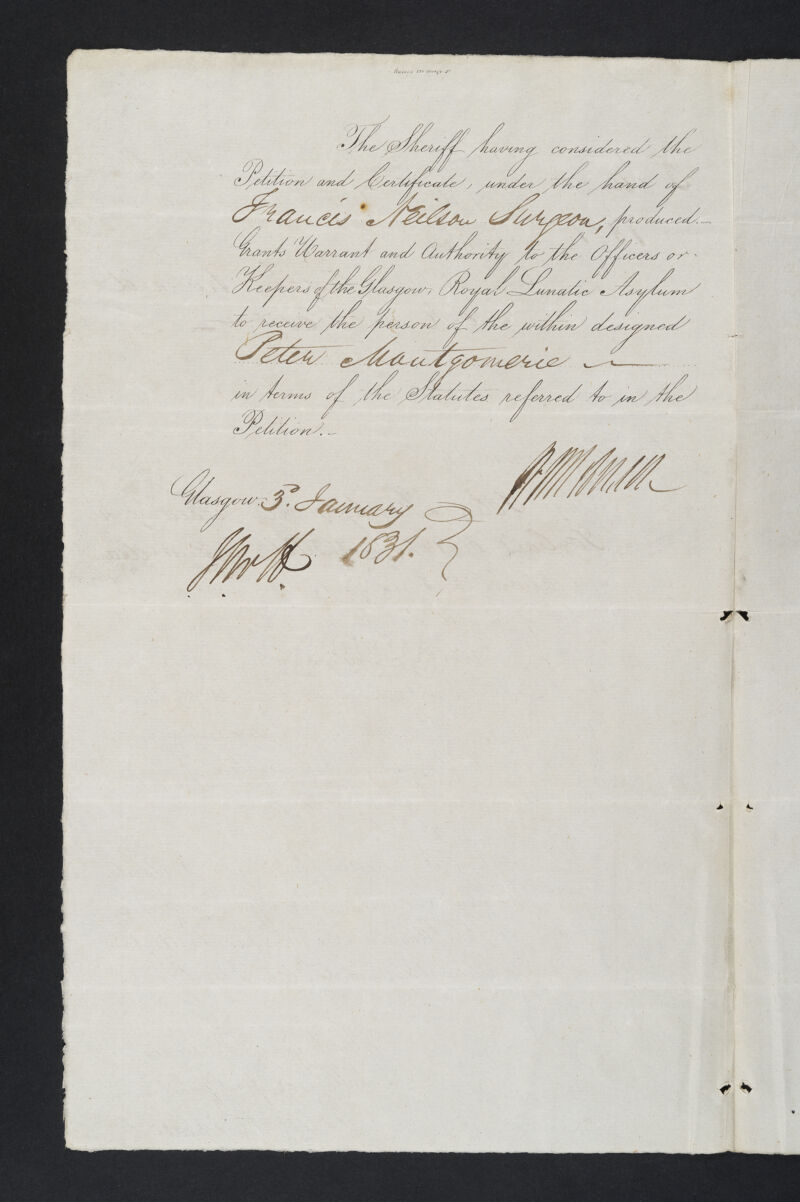 The Sheriff having considered the
Petition and Certificate, under the hand of
Francis Neilson Surgeon, produced.—
Grants Warrant and Authority to the Officers or
Keepers of the Glasgow, Royal Lunatic Asylum
to receive the person of the within designed
Peter Montgomerie —
in terms of the Statutes referred to in the
Petition.—
Glasgow 3d. January
1831.